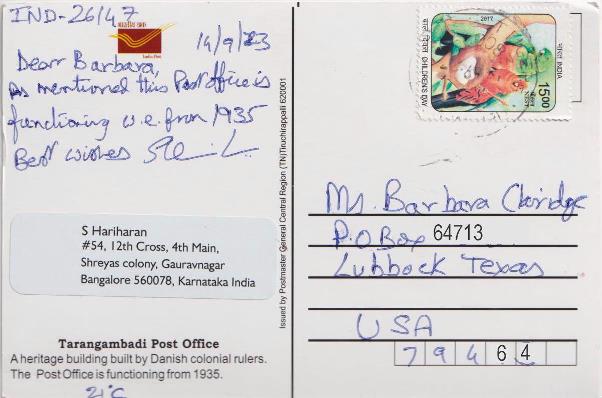 IND-26/47
14/9/23
India Post
Dear Barbara,
As mentioned this Post office is
functioning w.e.from 1935
Best wishes
S Hariharan
#54, 12th Cross, 4th Main,
Shreyas colony, Gauravnagar
Bangalore 560078, Karnataka India
Tarangambadi Post Office
A heritage building built by Danish colonial rulers.
The Post Office is functioning from 1935.
21°C
Issued by Postmaster General Central Region (TN)Tiruchirappalli 620001
2017
बाल दिवस CHILDREN'S DAY
भारत INDIA
1500
Ms. Barbara Claridge
P.O Box 64713
Lubbock Texas
USA
79464